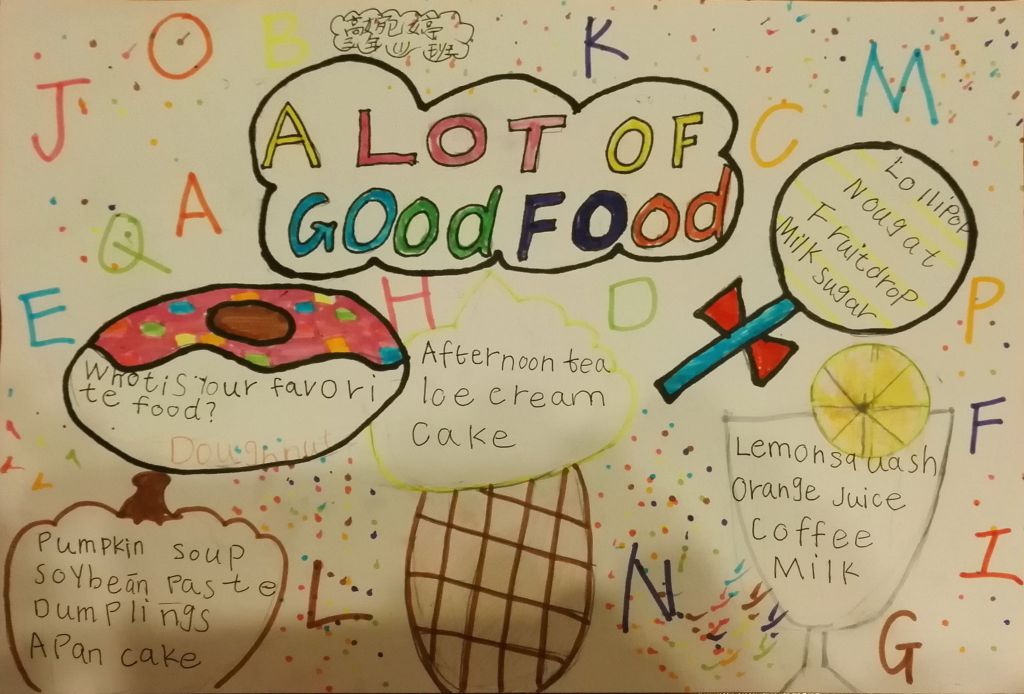 O
B
三年四班
K
J
M
A LOT OF
GOOd FOOd
C
A
Q
Lollipop
Nougat
Fruitdrop
Milk sugar
E
H
D
P
What is Your favori
te food?
Doughnut
Afternoon tea
Ice cream
cake
F
Lemonsquash
Orange Juice
Coffee
Milk
Pumpkin soup
Soybean Paste
Dumplings
A Pan cake
L
N
I
G